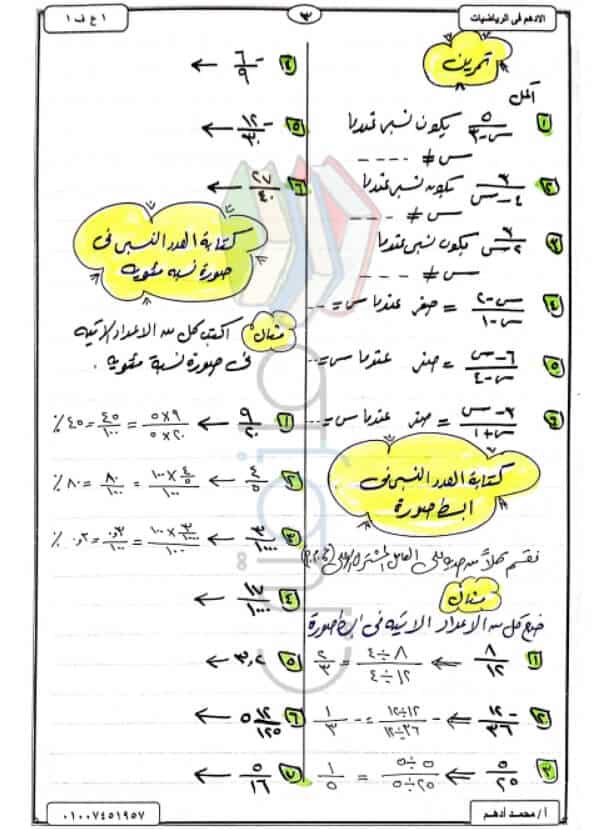 الادهم فى الرياضيات
٣
١ ع ف ١
تمرين
أكمل
١ ٥/(س-٣) يكون نسبى عندما
س ≠ ----
٢ ٣/(٤-س) يكون نسبى عندما
س ≠ ----
٣ ٦/(٢-س) يكون نسبى عندما
س ≠ ----
٤ (س-٢)/(س-١) = صفر عندما س= ...
٥ (٦-س)/(س-٤) = صفر عندما س= ...
٦ (٣-س)/(س+١) = صفر عندما س= ...
كتابة العدد النسبى فى
ابسط صورة
نقسم كلاً من حدوده على العامل المشترك الأعلى
مثال
ضع كل من الاعداد الاتيه فى ابسط صورة
١ ٨/١٢ ⇐ (٨÷٤)/(١٢÷٤) = ٢/٣
٢ -١٢/٣٦ ⇐ -(١٢÷١٢)/(٣٦÷١٢) = -١/٣
٣ ٥/٢٥ ⇐ (٥÷٥)/(٢٥÷٥) = ١/٥
٤ -٦/٩ ←
٥ -١٢/٣٠ ←
٦ ٢٧/٤٠ ←
كتابة العدد النسبى فى
صورة نسبه مئويه
مثال اكتب كل من الاعداد الاتيه
فى صورة نسبة مئويه .
١ ٩/٢٠ ← (٩×٥)/(٢٠×٥) = ٤٥/١٠٠ = ٤٥٪
٢ ٤/٥ ← (٤/٥×١٠٠)/١٠٠ = ٨٠/١٠٠ = ٨٠٪
٣ ٣/١٠٠٠ ← (٣/١٠٠٠×١٠٠)/١٠٠ = ٠,٣/١٠٠ = ٠,٣٪
٤ ١٧/١٠٠٠ ←
٥ ٣,٢ ←
٦ ٥ ١٢/١٢٥ ←
٧ ٥/١٦ ←
أ / محمد أدهم
٠١٠٠٧٤٥١٩٥٧